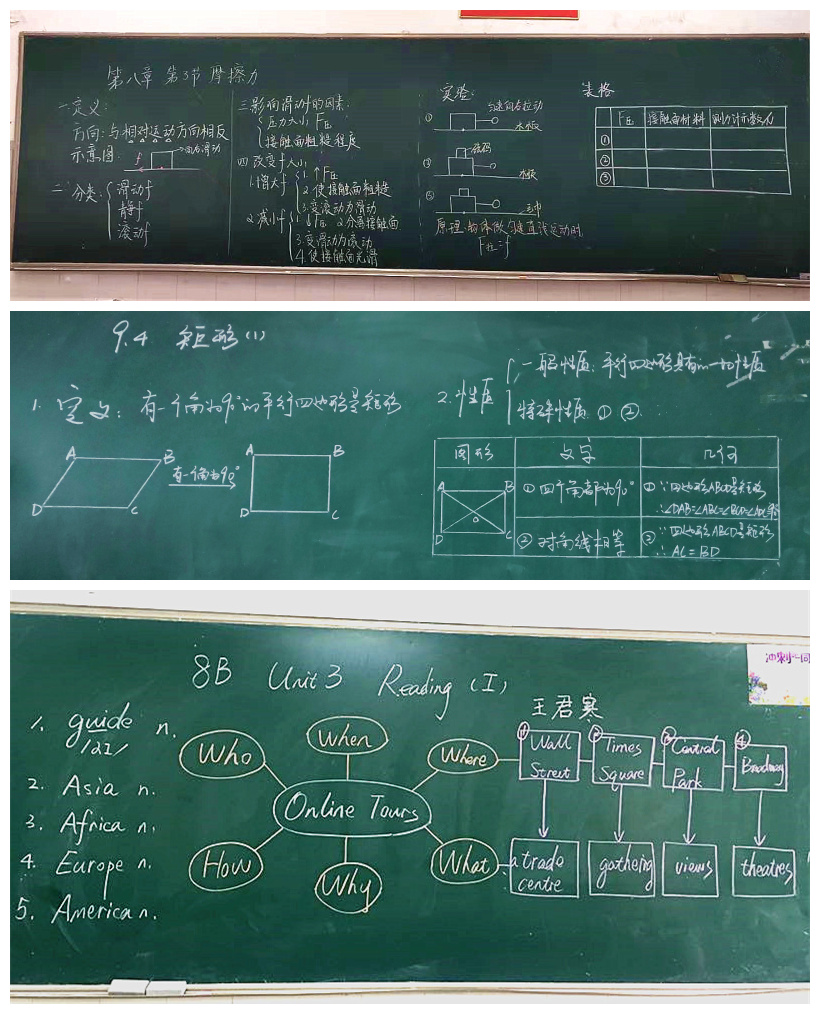 第八章 第3节 摩擦力
一 定义:
方向:与相对运动方向相反
示意图
f
向右滑动
二 分类:
滑动f
静f
滚动f
三 影响滑动f的因素:
压力大小 F压
接触面粗糙程度
四 改变f大小
1.增大f
1. ↑F压
2.使接触面粗糙
3.变滚动为滑动
2.减小f
1. ↓F压 2.分离接触面
3.变滑动为滚动
4.使接触面光滑
实验:
匀速向右拉动
①
木板
砝码
②
木板
③
毛巾
原理:物体做匀速直线运动时
F拉=f
表格
F压 接触面材料 测力计示数/N
①
②
③
9.4 矩形(1)
1. 定义: 有一个角为90°的平行四边形是矩形
A B
D C
有一个角为90°
A B
D C
2.性质
一般性质: 平行四边形具有的一切性质
特殊性质: ① ②.
图形 文字 几何
A B
O
D C
①四个角都为90°
①∵四边形ABCD是矩形
∴∠DAB=∠ABC=∠BCD=∠ADC
②对角线相等
②∵四边形ABCD是矩形
∴ AC=BD
冲刺
8B Unit 3 Reading (I)
王君寒
1. guide n.
2. Asia n.
3. Africa n.
4. Europe n.
5. America n.
Who
When
Where
Online Tours
How
Why
What
① Wall
Street
② Times
Square
③ Central
Park
④ Broadway
a trade
centre
gathering
views
theatres